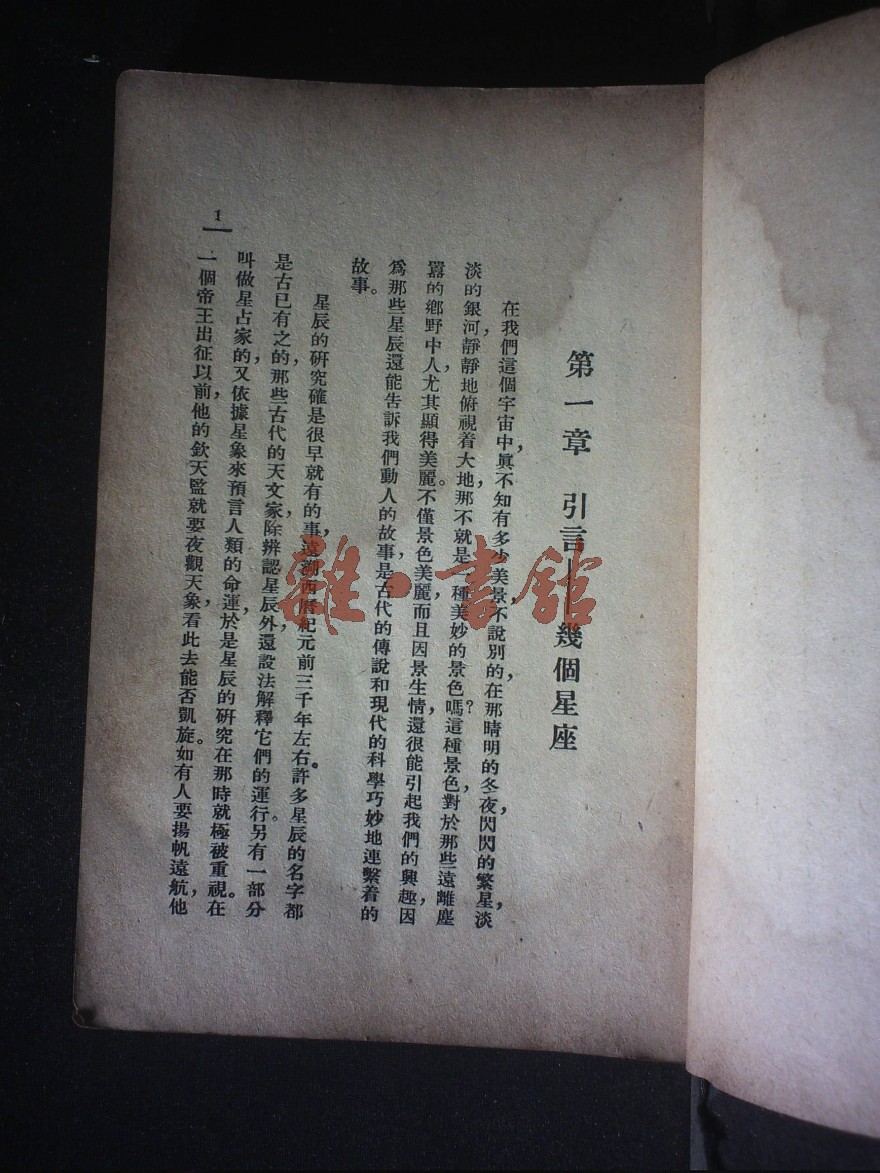 第一章 引言——幾個星座
在我們這個宇宙中，眞不知有多少美景，不說別的，在那晴明的冬夜，閃閃的繁星，淡
淡的銀河，靜靜地俯視着大地，那不就是一種美妙的景色嗎？這種景色，對於那些遠離塵
囂的鄉野中人尤其顯得美麗。不僅景色美麗，而且因景生情，還很能引起我們的興趣，因
爲那些星辰還能告訴我們動人的故事，是古代的傳說和現代的科學巧妙地連繫着的
故事。
星辰的硏究確是很早就有的事，遠溯西曆紀元前三千年左右。許多星辰的名字都
是古已有之的，那些古代的天文家，除辨認星辰外，還設法解釋它們的運行。另有一部分
叫做星占家的，又依據星象來預言人類的命運，於是星辰的硏究在那時就極被重視。在
一個帝王出征以前，他的欽天監就要夜觀天象，看此去能否凱旋。如有人要揚帆遠航，他
1
雜·書館